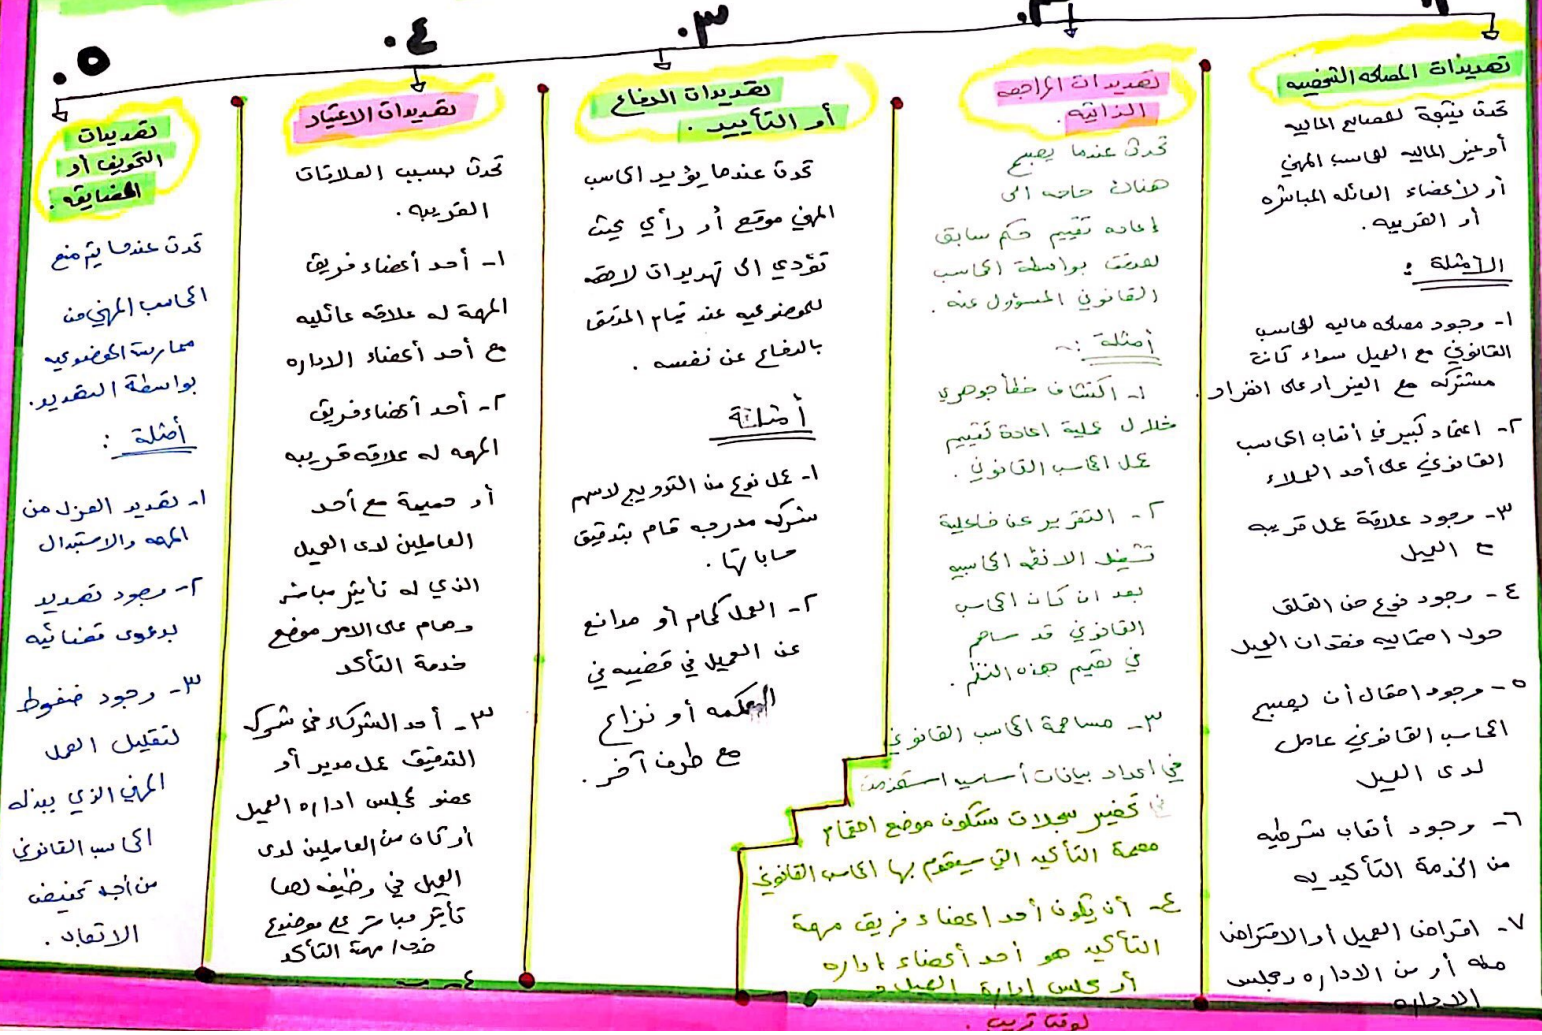 تهديدات المصلحه الشخصيه
تحدث نتيجة للمصالح الماليه
أو غير الماليه للمحاسب المهني
أو لأعضاء العائله المباشره
أو القريبه.
الأمثلة :
١- وجود مصلحه ماليه للمحاسب
القانوني مع العميل سواء كانت
مشتركه مع الغير أو على انفراد.
٢- اعتماد كبير في أتعاب المحاسب
القانوني على أحد العملاء
٣- وجود علاقة عمل قريبه
مع العميل
٤- وجود نوع من القلق
حول احتماليه فقدان العميل
٥- وجود احتمال أن يصبح
المحاسب القانوني عامل
لدى العميل
٦- وجود أتعاب شرطيه
من الخدمة التأكيديه
٧- اقراض العميل أو الاقتراض
منه أو من الاداره ومجلس
الاداره
٠٢
تهديدات المراجعه
الذاتيه.
تحدث عندما يصبح
هناك حاجه الى
إعاده تقييم حكم سابق
بواسطة المحاسب
القانوني المسؤول عنه.
أمثلة :-
١- اكتشاف خطأ جوهري
خلال عملية اعادة تقييم
عمل المحاسب القانوني.
٢- التقرير عن فاعلية
تشغيل الانظمه المحاسبيه
بعد ان كان المحاسب
القانوني قد ساهم
في تقييم هذه النظم.
٣- مساهمة المحاسب القانوني
في اعداد بيانات أساسيه استخدمت
في تحضير سجلات ستكون موضع اهتمام
مهمة التأكيد التي سيقوم بها المحاسب القانوني
٤- أن يكون أحد اعضاء فريق مهمة
التأكيد هو أحد أعضاء اداره
أو مجلس إدارة العميل
لوقت قريب.
٠٣
تهديدات الدفاع
أو التأييد.
تحدث عندما يؤيد المحاسب
المهني موقع أو رأي بحيث
تؤدي الى تهديدات لاحقه
للموضوعيه عند قيام المدقق
بالدفاع عن نفسه.
أمثلة
١- عمل نوع من الترويج لاسهم
شركه مدرجه قام بتدقيق
حساباتها.
٢- العمل كمحام أو مدافع
عن العميل في قضيه في
المحكمه أو نزاع
مع طرف آخر.
٠٤
تهديدات الاعتياد
تحدث بسبب العلاقات
القريبه.
١- أحد أعضاء فريق
المهمة له علاقه عائليه
مع أحد أعضاء الاداره
٢- أحد أعضاء فريق
المهمه له علاقه قريبه
أو حميمة مع أحد
العاملين لدى العميل
الذي له تأثير مباشر
وهام على الامر موضع
خدمة التأكد
٣- أحد الشركاء في شركة
التدقيق عمل مدير أو
عضو مجلس اداره العميل
أو كان من العاملين لدى
العميل في وظيفه لها
تأثير مباشر على موضوع
مهمة التأكد
٤-
٠٥
تهديدات
التخويف أو
المضايقه.
تحدث عندما يتم منع
المحاسب المهني من
ممارسة الموضوعيه
بواسطة التهديد.
أمثلة :
١- تهديد العزل من
المهمه والاستبدال
٢- وجود تهديد
بدعوى قضائيه
٣- وجود ضغوط
لتقليل العمل
المهني الذي يبذله
المحاسب القانوني
من أجل تخفيض
الاتعاب.